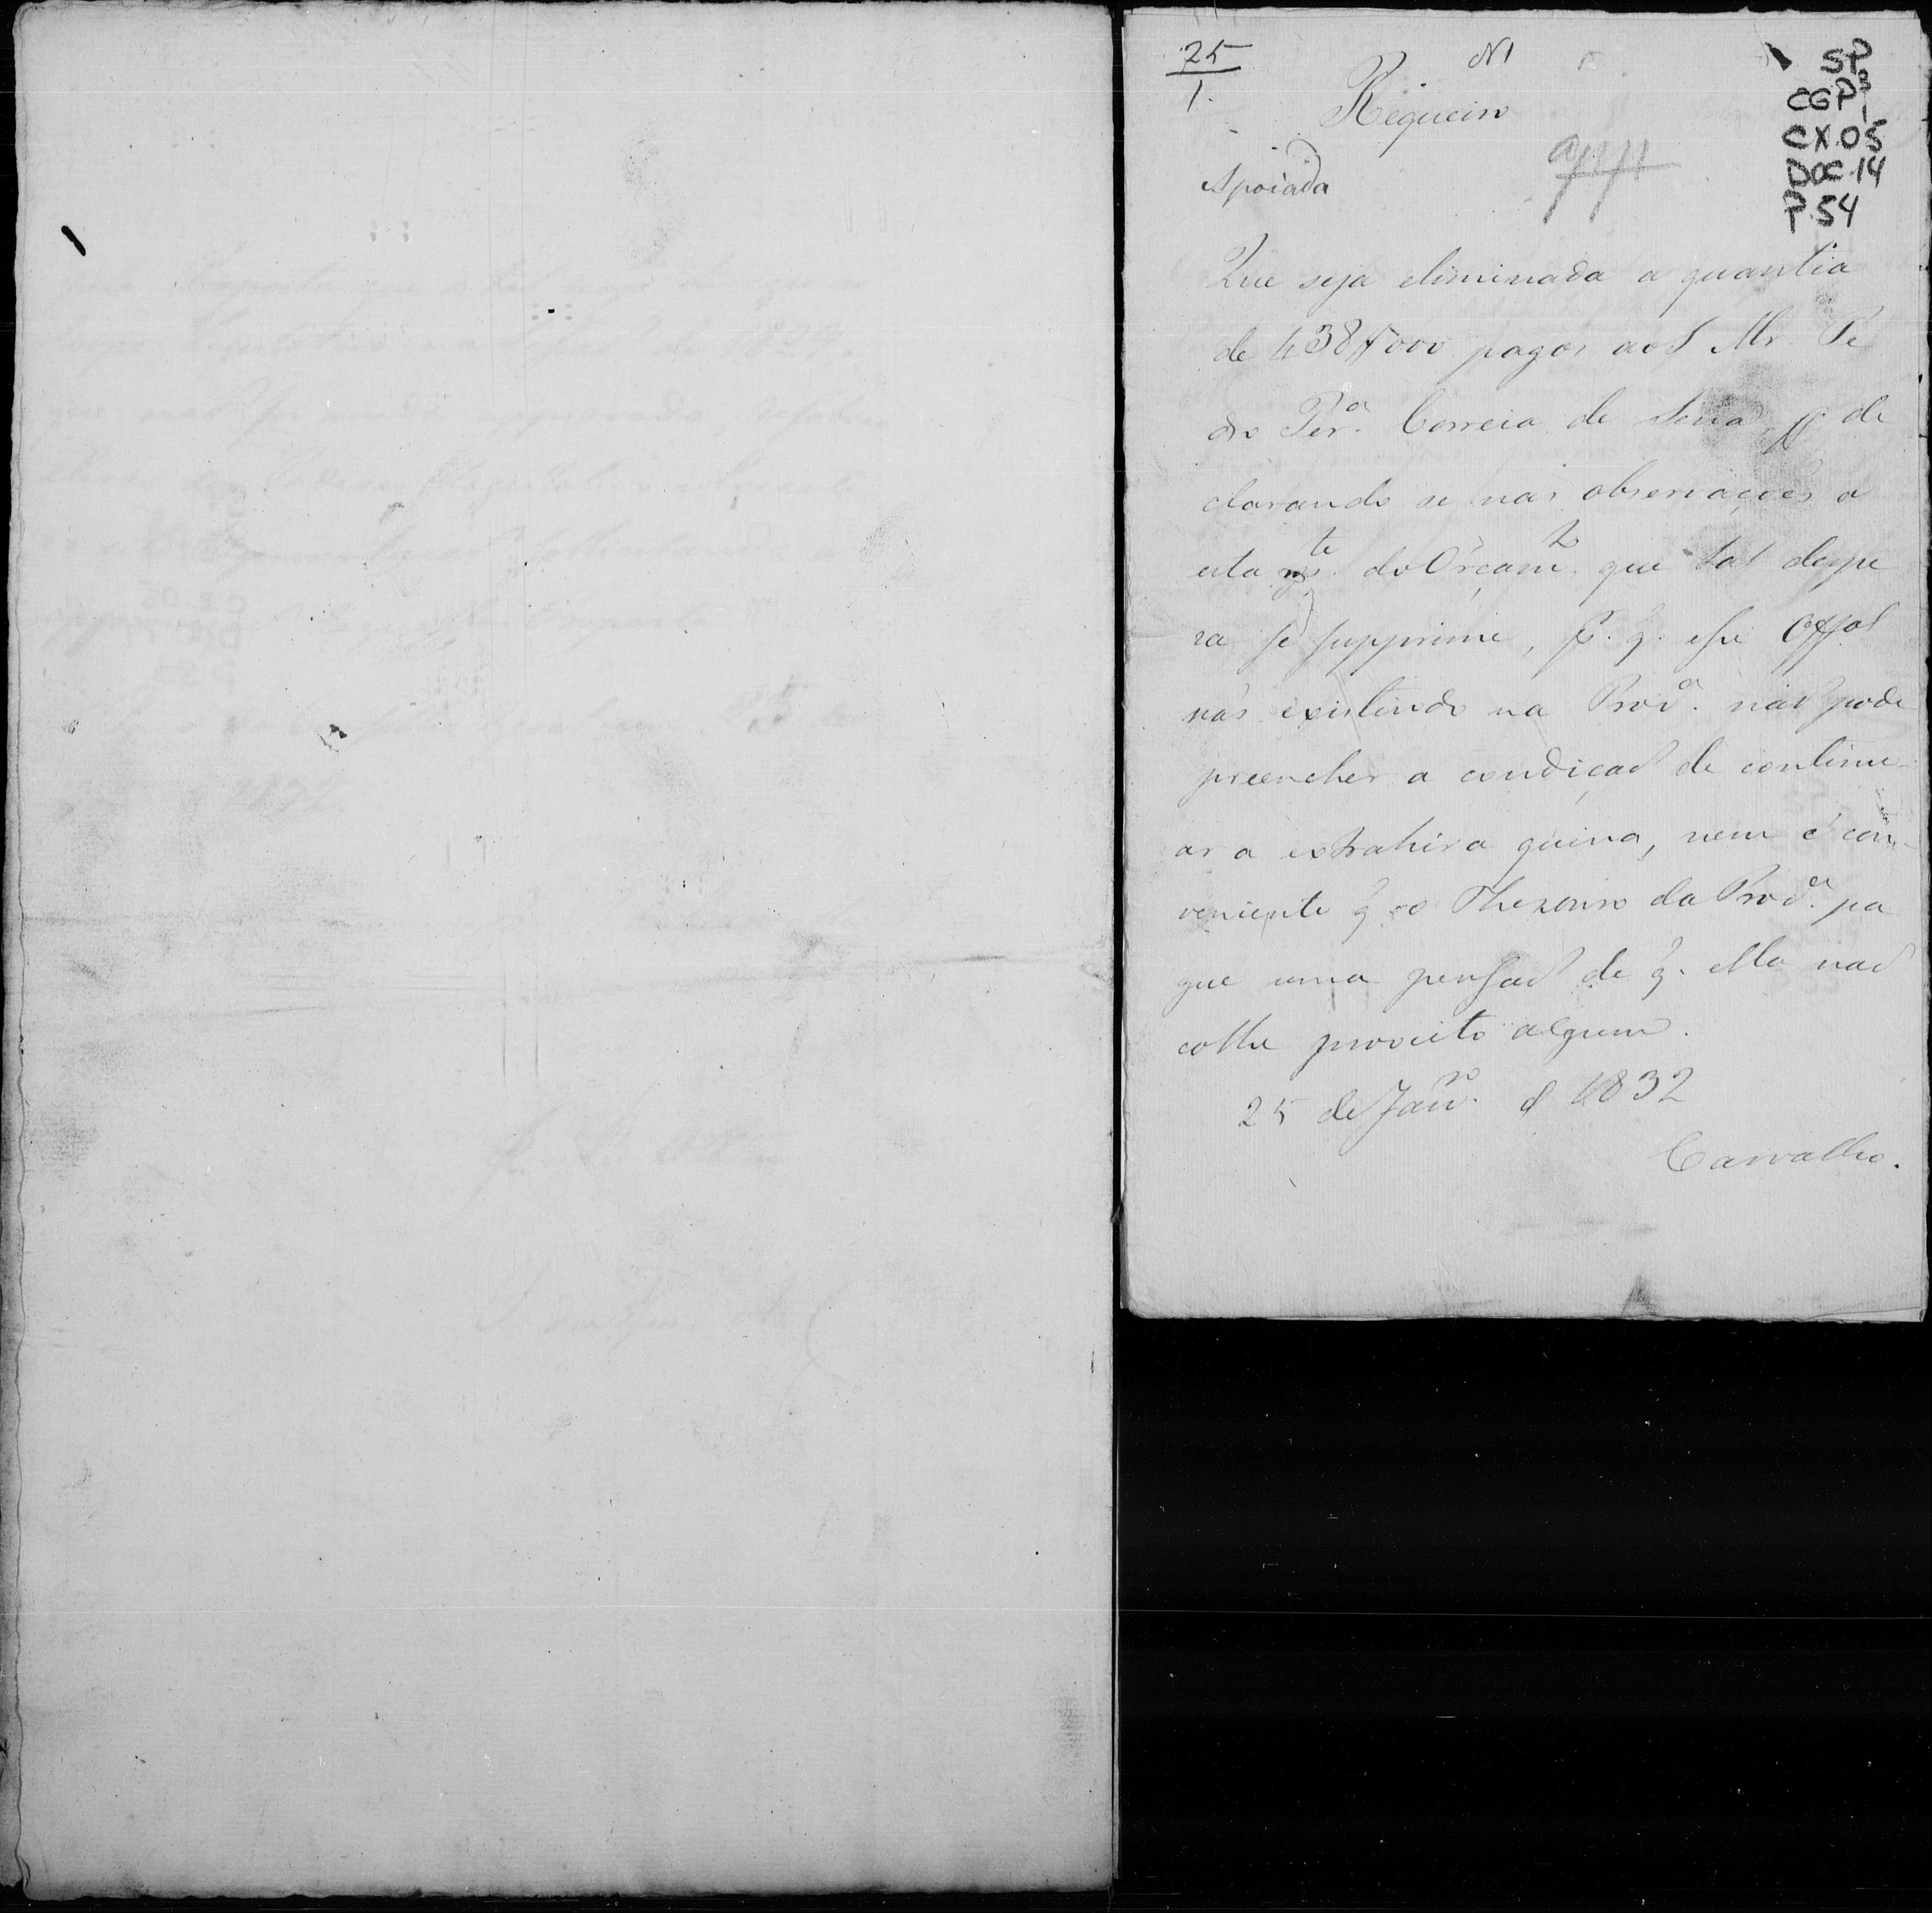 25
1.
N1
SP
CGP1
CX.05
DOC.14
P.54
Requeiro
app
Apoiada
Que seja eliminada a quantia
de 438$000 pagos ao S. Mr. Pe
dro Per.ª Correia de Sena, de
clarando se nas observações a
esta p.te do Orçam.to que tal despe
za se supprime, p. q. esse Off.al
não existindo na Prov.ª não pode
preencher a condição de continu-
ar a extrahir a quina, nem é con-
veniente q. o Thezouro da Prov.ª pa
gue uma pensão de q. ella não
colhe proveito algum.
25 de Jan.ro d 1832
Carvalho.